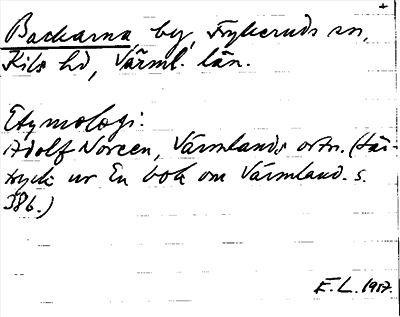 +
Backarna by, Frykeruds sn,
Kils hd, Värml. län.
Etymologi:
Adolf Noreen, Värmlands ortn. (Sär-
tryck ur En bok om Värmland. s.
386.)
E. L. 1917.